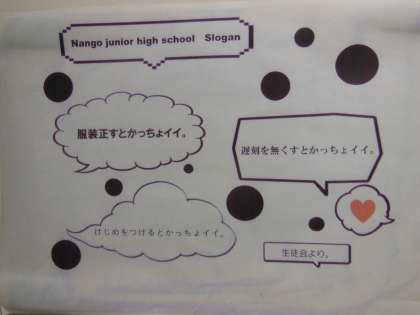 Nango junior high school Slogan
服装正すとかっちょイイ。
遅刻を無くすとかっちょイイ。
けじめをつけるとかっちょイイ。
生徒会より。